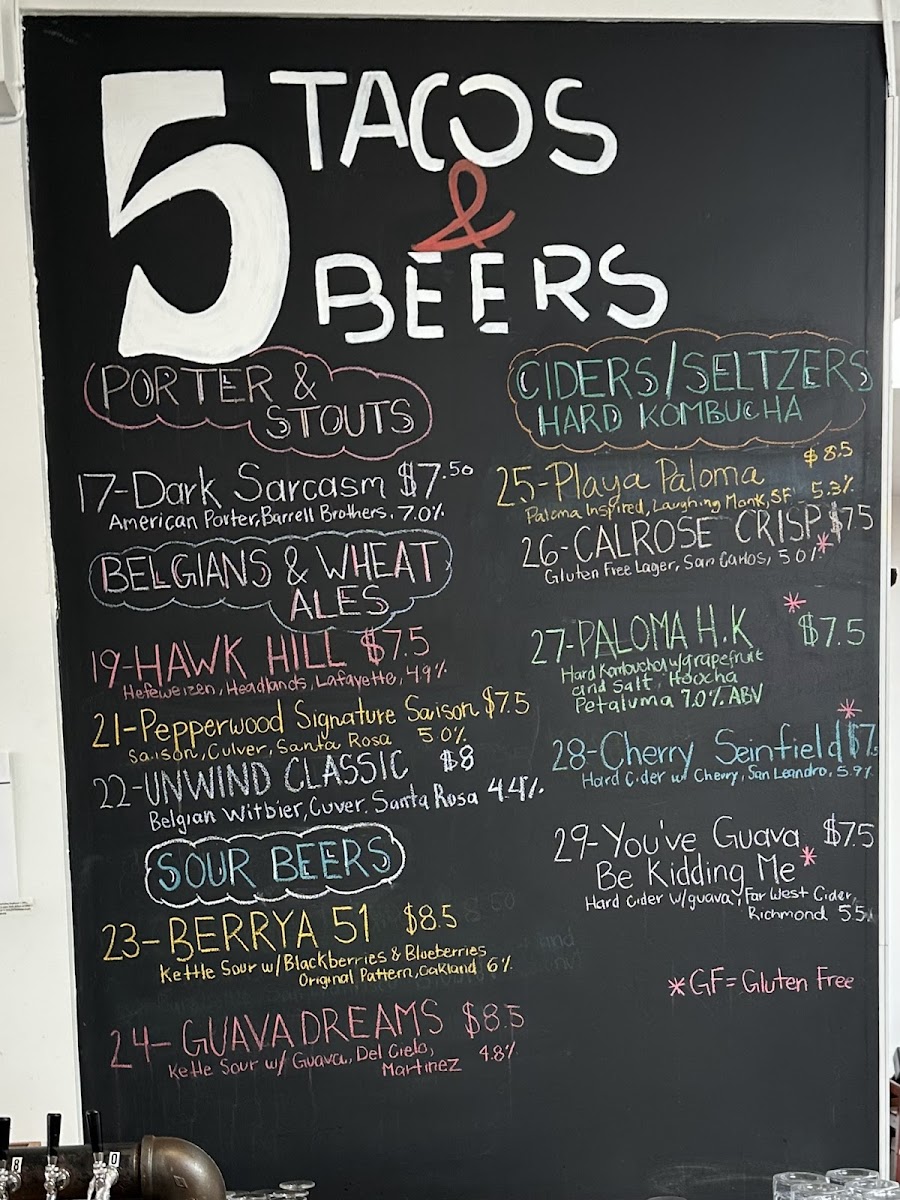 5 TACOS
&
BEERS
PORTER &
STOUTS
17-Dark Sarcasm $7.50
American Porter, Barrell Brothers, 7.0%
BELGIANS & WHEAT
ALES
19-HAWK HILL $7.5
Hefeweizen, Headlands, Lafayette, 4.9%
21-Pepperwood Signature Saison $7.5
Saison, Culver, Santa Rosa 5.0%
22-UNWIND CLASSIC $8
Belgian Witbier, Cuver, Santa Rosa 4.4%
SOUR BEERS
23-BERRYA 51 $8.5
Kettle Sour w/Blackberries & Blueberries
Original Pattern, Oakland 6%
24-GUAVA DREAMS $8.5
Kettle Sour w/ Guava, Del Cielo,
Martinez 4.8%
CIDERS/SELTZERS
HARD KOMBUCHA
25-Playa Paloma $8.5
Paloma Inspired, Laughing Monk, SF 5.3%
26-CALROSE CRISP $7.5
Gluten Free Lager, San Carlos, 5.0% *
27-PALOMA H.K * $7.5
Hard Kombucha w/grapefruit
and Salt, Hoocha
Petaluma 7.0% ABV
28-Cherry Seinfield * $7.
Hard Cider w/ Cherry, San Leandro, 5.9%
29-You've Guava $7.5
Be Kidding Me *
Hard Cider w/guava, Far West Cider,
Richmond 5.5%
* GF = Gluten Free
8
0